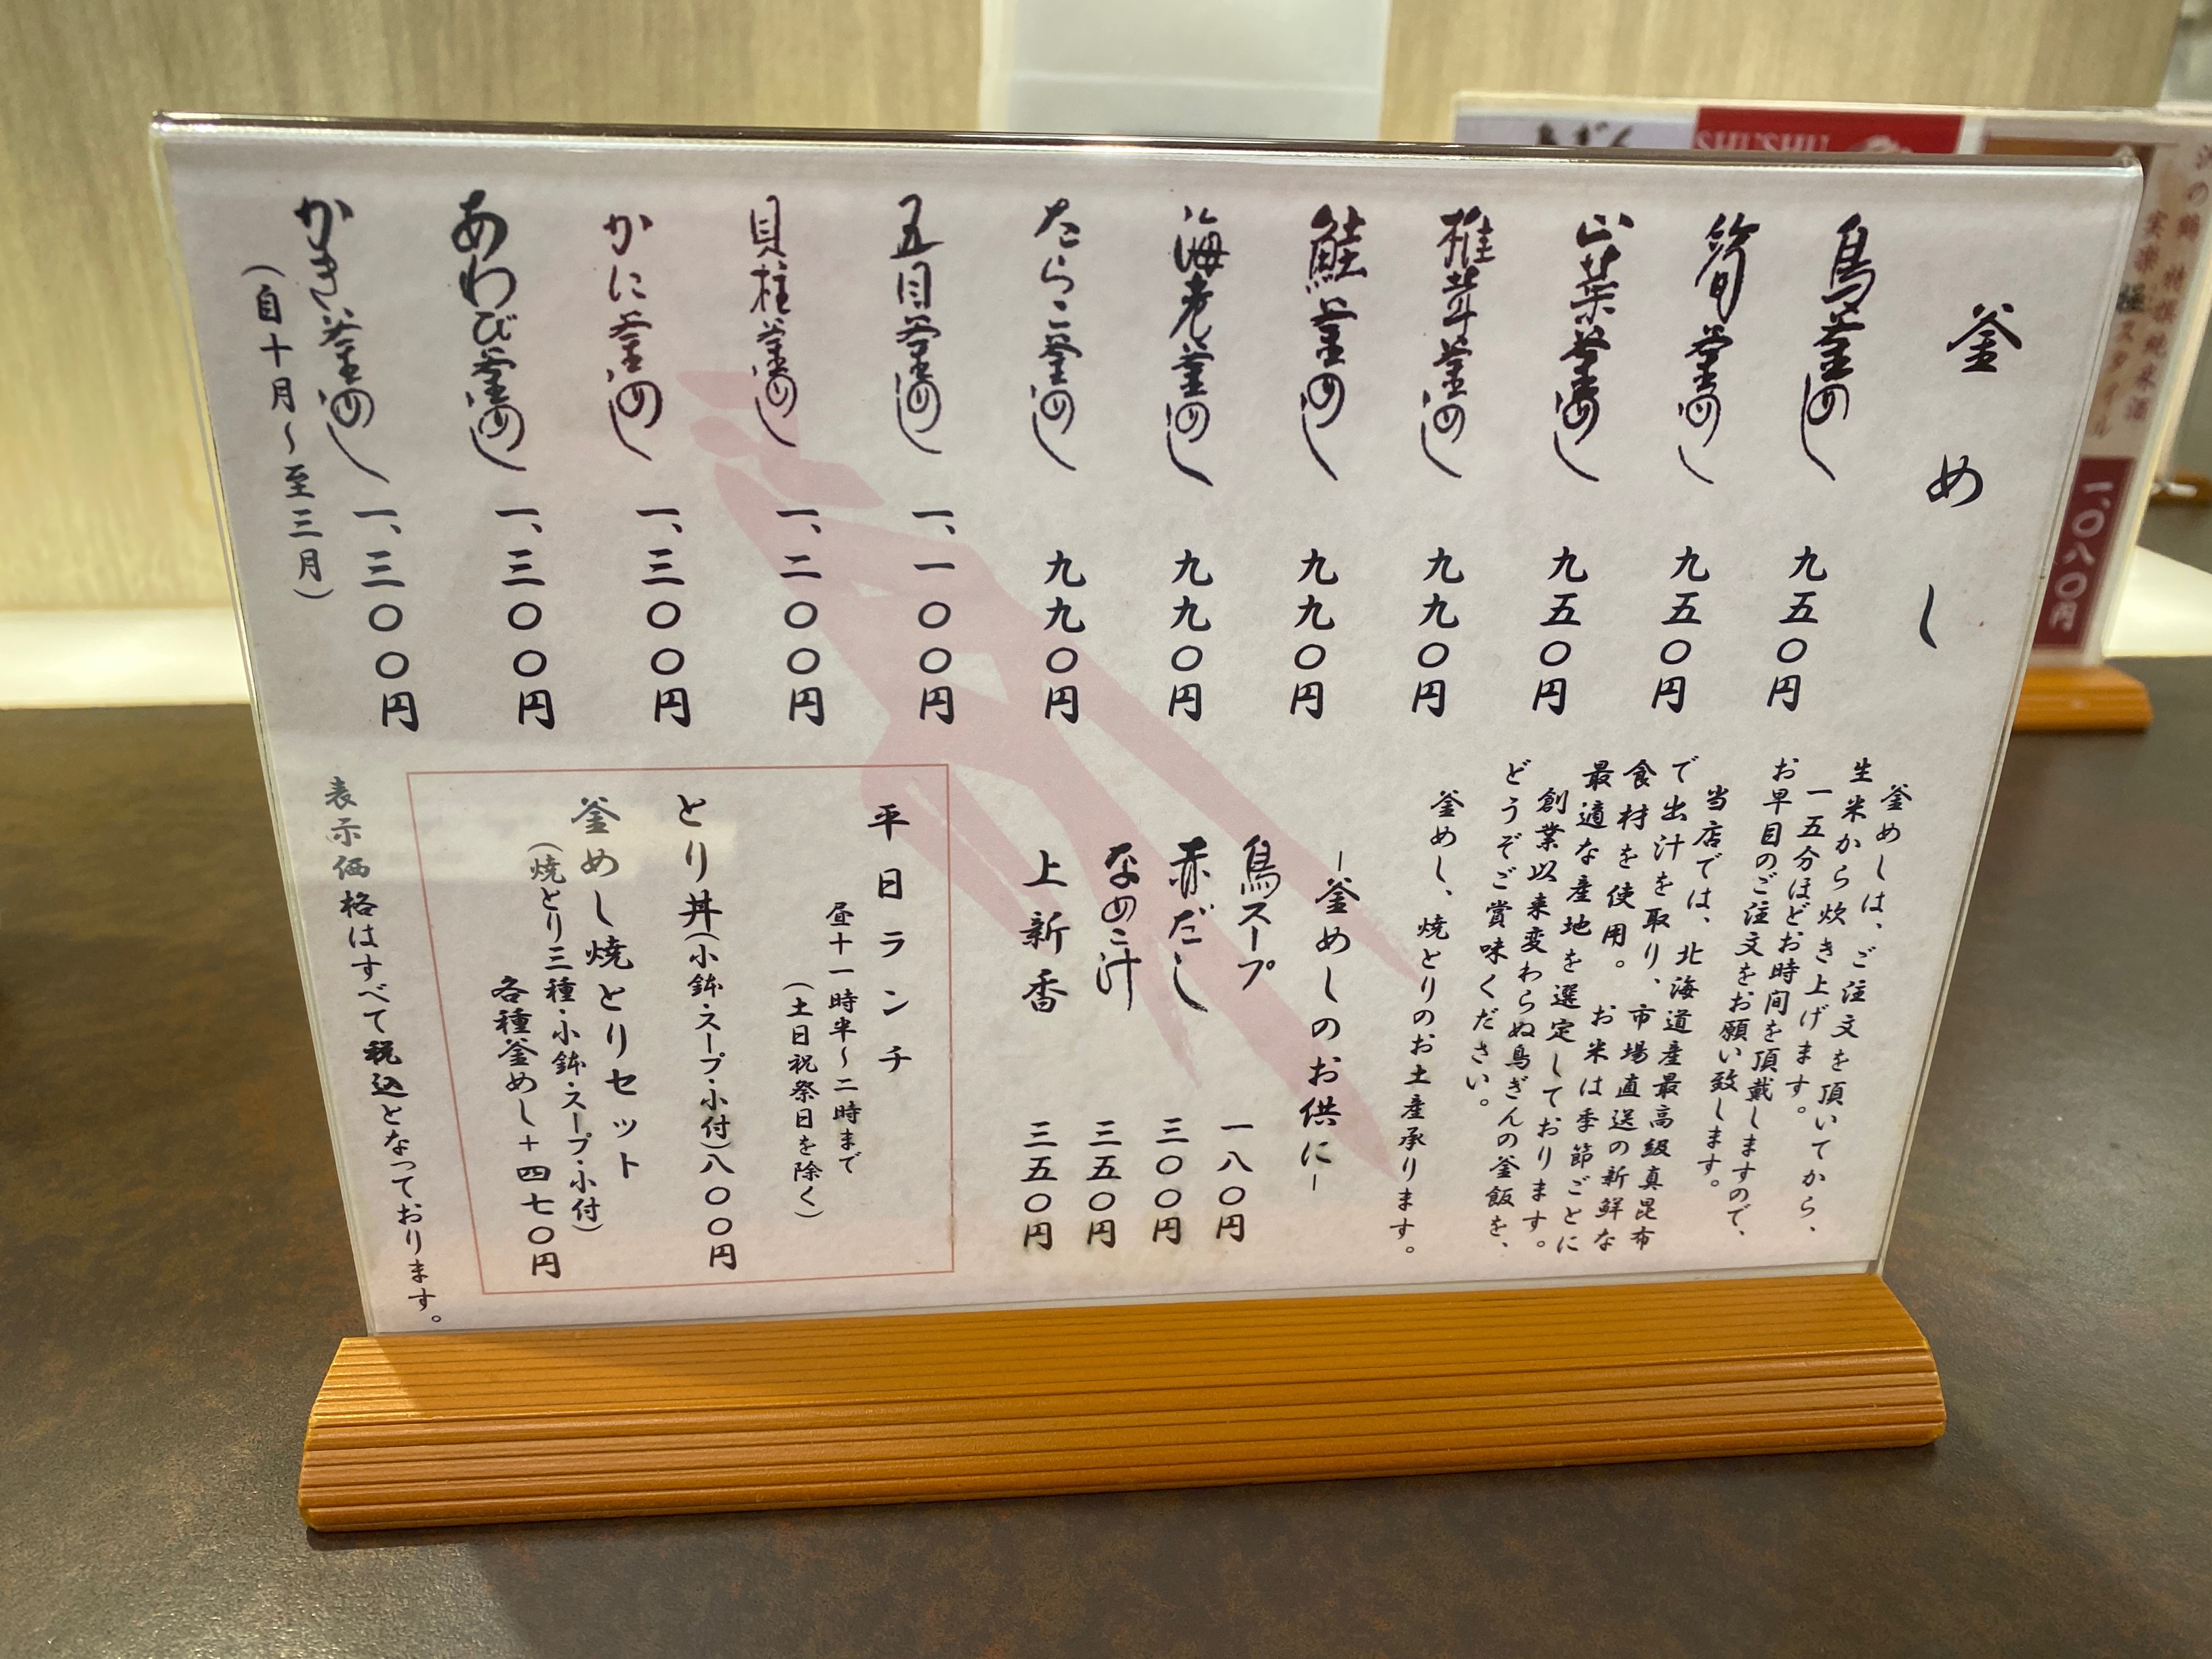 釜めし
鳥釜めし 九五〇円
筍釜めし 九五〇円
山菜釜めし 九五〇円
椎茸釜めし 九九〇円
鮭釜めし 九九〇円
海老釜めし 九九〇円
たらこ釜めし 九九〇円
五目釜めし 一、一〇〇円
貝柱釜めし 一、二〇〇円
かに釜めし 一、三〇〇円
あわび釜めし 一、三〇〇円
かき釜めし 一、三〇〇円
(自十月〜至三月)
釜めしは、ご注文を頂いてから、
生米から炊き上げます。
一五分ほどお時間を頂戴しますので、
お早目のご注文をお願い致します。
当店では、北海道産最高級真昆布
で出汁を取り、市場直送の新鮮な
食材を使用。お米は季節ごとに
最適な産地を選定しております。
創業以来変わらぬ鳥ぎんの釜飯を、
どうぞご賞味ください。
釜めし、焼とりのお土産承ります。
-釜めしのお供に-
鳥スープ 一八〇円
赤だし 三〇〇円
なめこ汁 三五〇円
上新香 三五〇円
平日ランチ
昼十一時半〜二時まで
(土日祝祭日を除く)
とり丼(小鉢・スープ・小付)八〇〇円
釜めし焼とりセット
(焼とり三種・小鉢・スープ・小付)
各種釜めし+四七〇円
表示価格はすべて税込となっております。
SHUSHU
特撰純米酒
一、〇八〇円